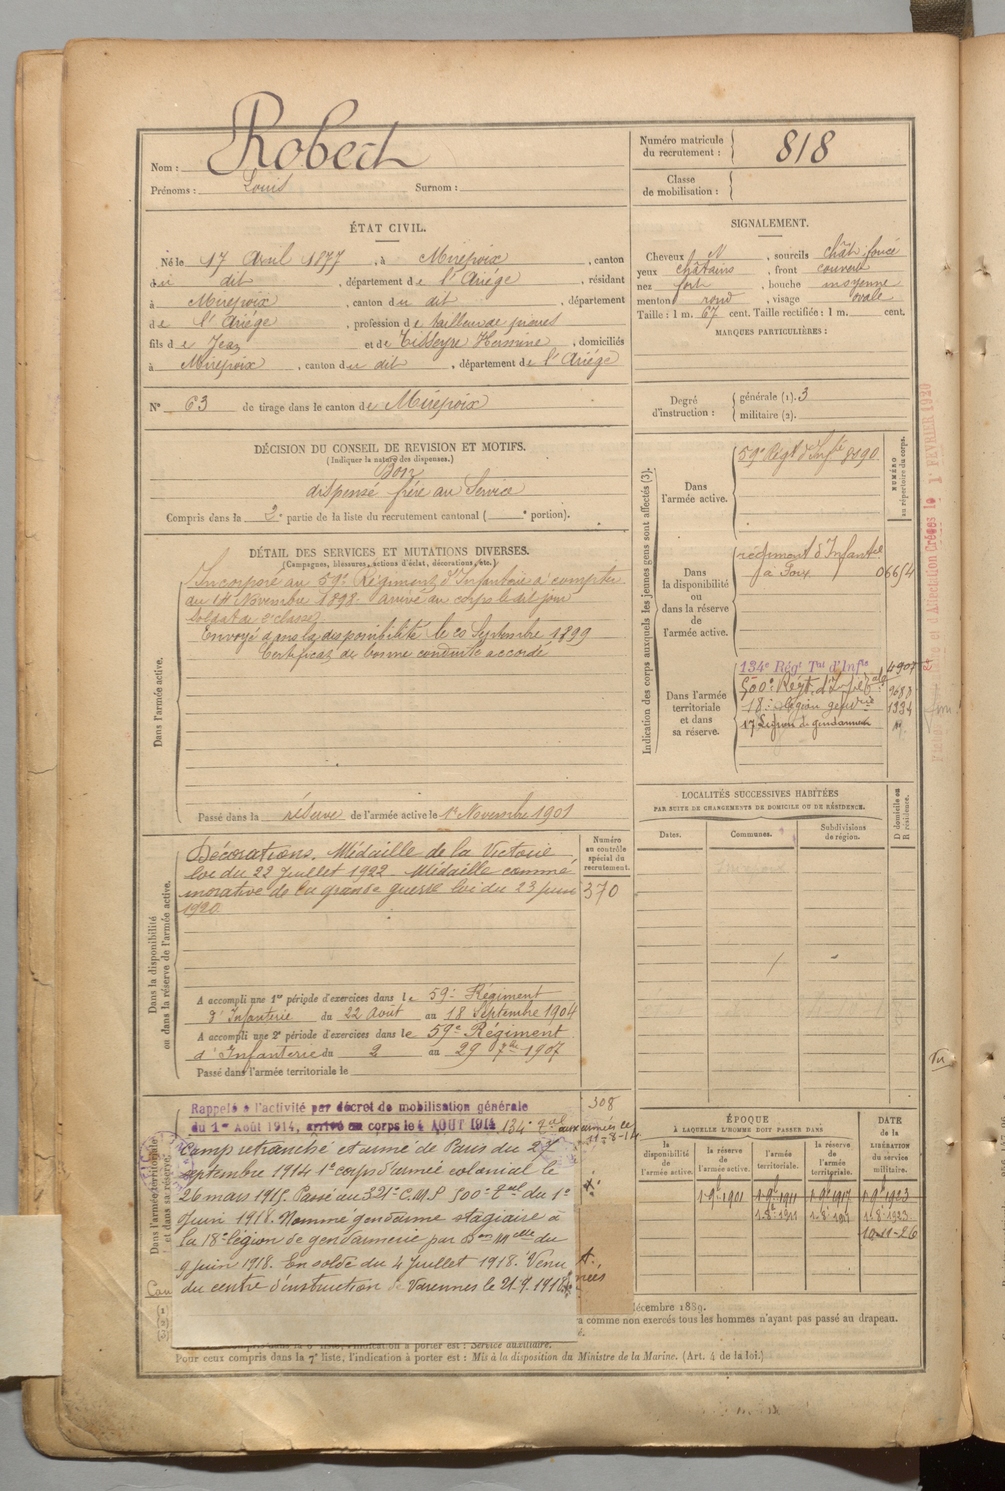 Nom : Robert
Prénoms : Louis Surnom :
Numéro matricule du recrutement : 818
Classe de mobilisation :
ÉTAT CIVIL.
Né le 17 Avril 1877, à Mirepoix, canton
du dit, département de l'Ariège, résidant
à Mirepoix, canton du dit, département
de l'Ariège, profession de tailleur de pierres
fils de Jean et de Tisseyre Hermine, domiciliés
à Mirepoix, canton du dit, département de l'Ariège
N° 63 de tirage dans le canton de Mirepoix
SIGNALEMENT.
Cheveux N, sourcils chât. foncé
yeux châtains, front couvert
nez fort, bouche moyenne
menton rond, visage ovale
Taille : 1 m. 67 cent. Taille rectifiée : 1 m. cent.
MARQUES PARTICULIÈRES :
Degré d'instruction : générale (1). 3
militaire (2).
DÉCISION DU CONSEIL DE REVISION ET MOTIFS.
(Indiquer la nature des dispenses.)
Bon
dispensé frère au Service
Compris dans la 2e partie de la liste du recrutement cantonal ( e portion).
DÉTAIL DES SERVICES ET MUTATIONS DIVERSES.
(Campagnes, blessures, actions d'éclat, décorations, etc.)
Dans l'armée active.
Incorporé au 59e Régiment d'Infanterie à compter
du 14 Novembre 1898. arrivé au corps le dit jour
soldat de 2e classe
Envoyé dans la disponibilité le 20 Septembre 1899
Certificat de bonne conduite accordé
Passé dans la réserve de l'armée active le 1er Novembre 1901
Indication des corps auxquels les jeunes gens sont affectés (3).
NUMÉRO au répertoire du corps.
Dans l'armée active.
59e Régt d'Infie 8190
Dans la disponibilité ou dans la réserve de l'armée active.
régiment d'Infantie
à Foix 06654
Dans l'armée territoriale et dans sa réserve.
134e Régt Tal d'Infie 4907
500e Régt d'Infie 9688
18e Légion gendie 1334
17 Légion de gendarmerie
LOCALITÉS SUCCESSIVES HABITÉES
PAR SUITE DE CHANGEMENTS DE DOMICILE OU DE RÉSIDENCE.
D domicile ou R résidence.
Dates. Communes. Subdivisions de région.
Dans la disponibilité ou dans la réserve de l'armée active.
Numéro au contrôle spécial du recrutement.
370
Décorations. Médaille de la Victoire
loi du 22 Juillet 1922. Médaille commé
morative de la grande guerre loi du 23 juin
1920
A accompli une 1re période d'exercices dans le 59e Régiment
d'Infanterie du 22 Août au 18 Septembre 1904
A accompli une 2e période d'exercices dans le 59e Régiment
d'Infanterie du 2 au 29 7bre 1907
Passé dans l'armée territoriale le
Dans l'armée territoriale et dans sa réserve.
308
Rappelé à l'activité par décret de mobilisation générale
du 1er Août 1914, arrivé au corps le 4 AOUT 1914 134e Tal aux armées le
11-8-14
Camp retranché et armé de Paris du 27
septembre 1914 1er corps d'armée colonial le
26 mars 1915. Passé au 321e C.M.P. 500e Tal du 1er
Juin 1918. Nommé gendarme stagiaire à
la 18e légion de gendarmerie par Don Melle du
9 juin 1918. En solde du 4 Juillet 1918. Venu
du centre d'instruction de Varennes le 21.9.1918.
ÉPOQUE
À LAQUELLE L'HOMME DOIT PASSER DANS
la disponibilité de l'armée active. la réserve de l'armée active. l'armée territoriale. la réserve de l'armée territoriale.
DATE de la LIBÉRATION du service militaire.
1-9b-1901 1-9b-1911 1-9b-1917 1-9b-1923
1-8b-1911 1-8-1917 1-8-1923
10-11-26
décembre 1889.
comme non exercés tous les hommes n'ayant pas passé au drapeau.
liste, l'indication à porter est : Service auxiliaire.
Pour ceux compris dans la 7e liste, l'indication à porter est : Mis à la disposition du Ministre de la Marine. (Art. 4 de la loi.)
Vu